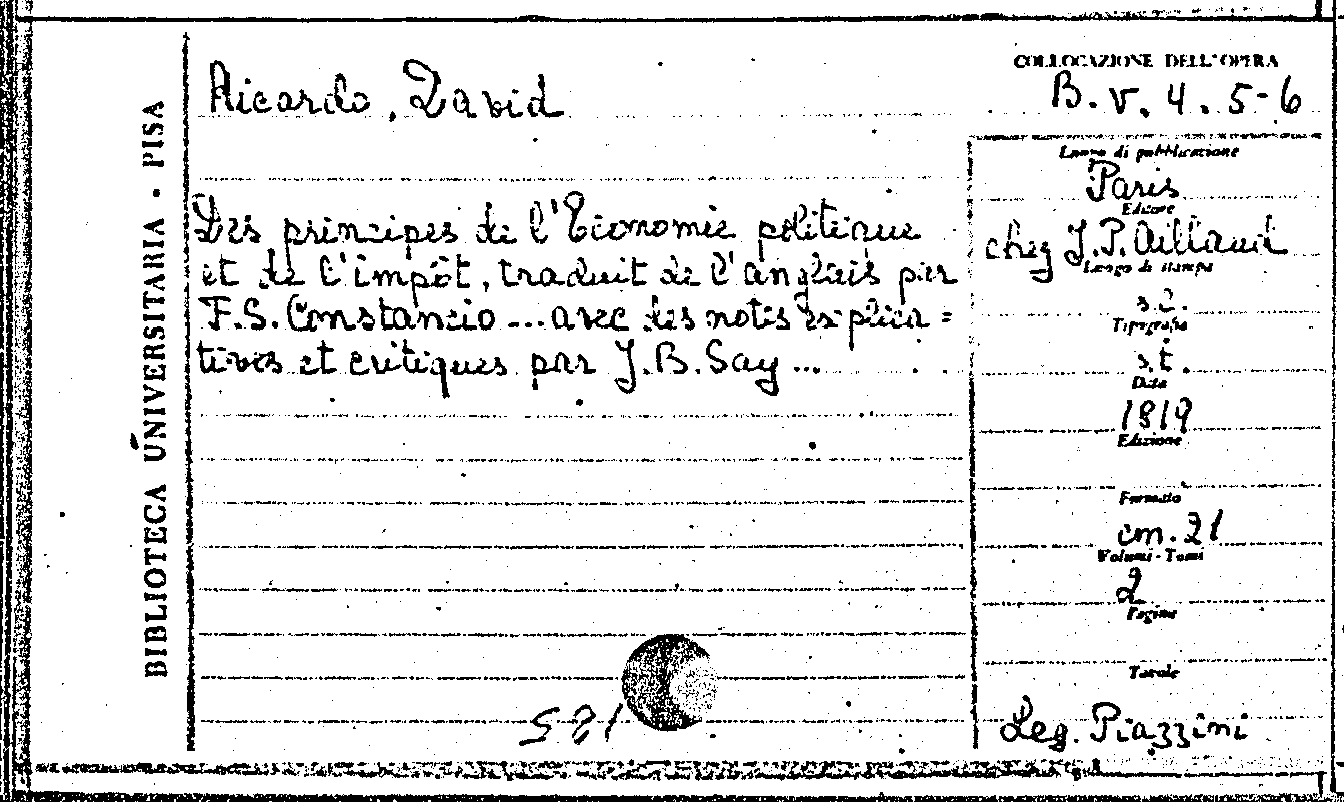 BIBLIOTECA UNIVERSITARIA - PISA
Ricardo, David
Des principes de l'Economie politique
et de l'impôt, traduit de l'anglais par
F.S. Constancio ... avec des notes explica=
tives et critiques par J.B. Say ...
COLLOCAZIONE DELL'OPERA
B. v. 4. 5-6
Luogo di pubblicazione
Paris
Editore
chez J.P. Aillaud
Luogo di stampa
s.l.
Tipografia
s.t.
Data
1819
Edizione
Formato
cm. 21
Volumi - Tomi
2
Pagine
Tavole
Leg. Piazzini